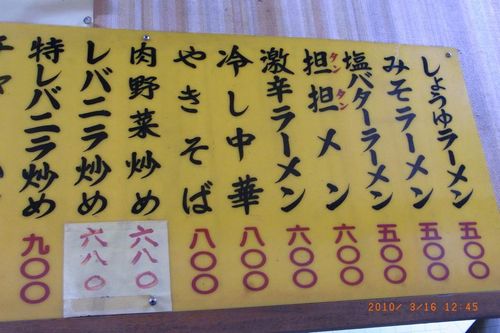 しょうゆラーメン 五〇〇
みそラーメン 五〇〇
塩バターラーメン 五〇〇
担担メン 六〇〇
タンタン
激辛ラーメン 六〇〇
冷し中華 八〇〇
やきそば 八〇〇
肉野菜炒め 六八〇
レバニラ炒め 六八〇
特レバニラ炒め 九〇〇
2010/ 3/16 12:45